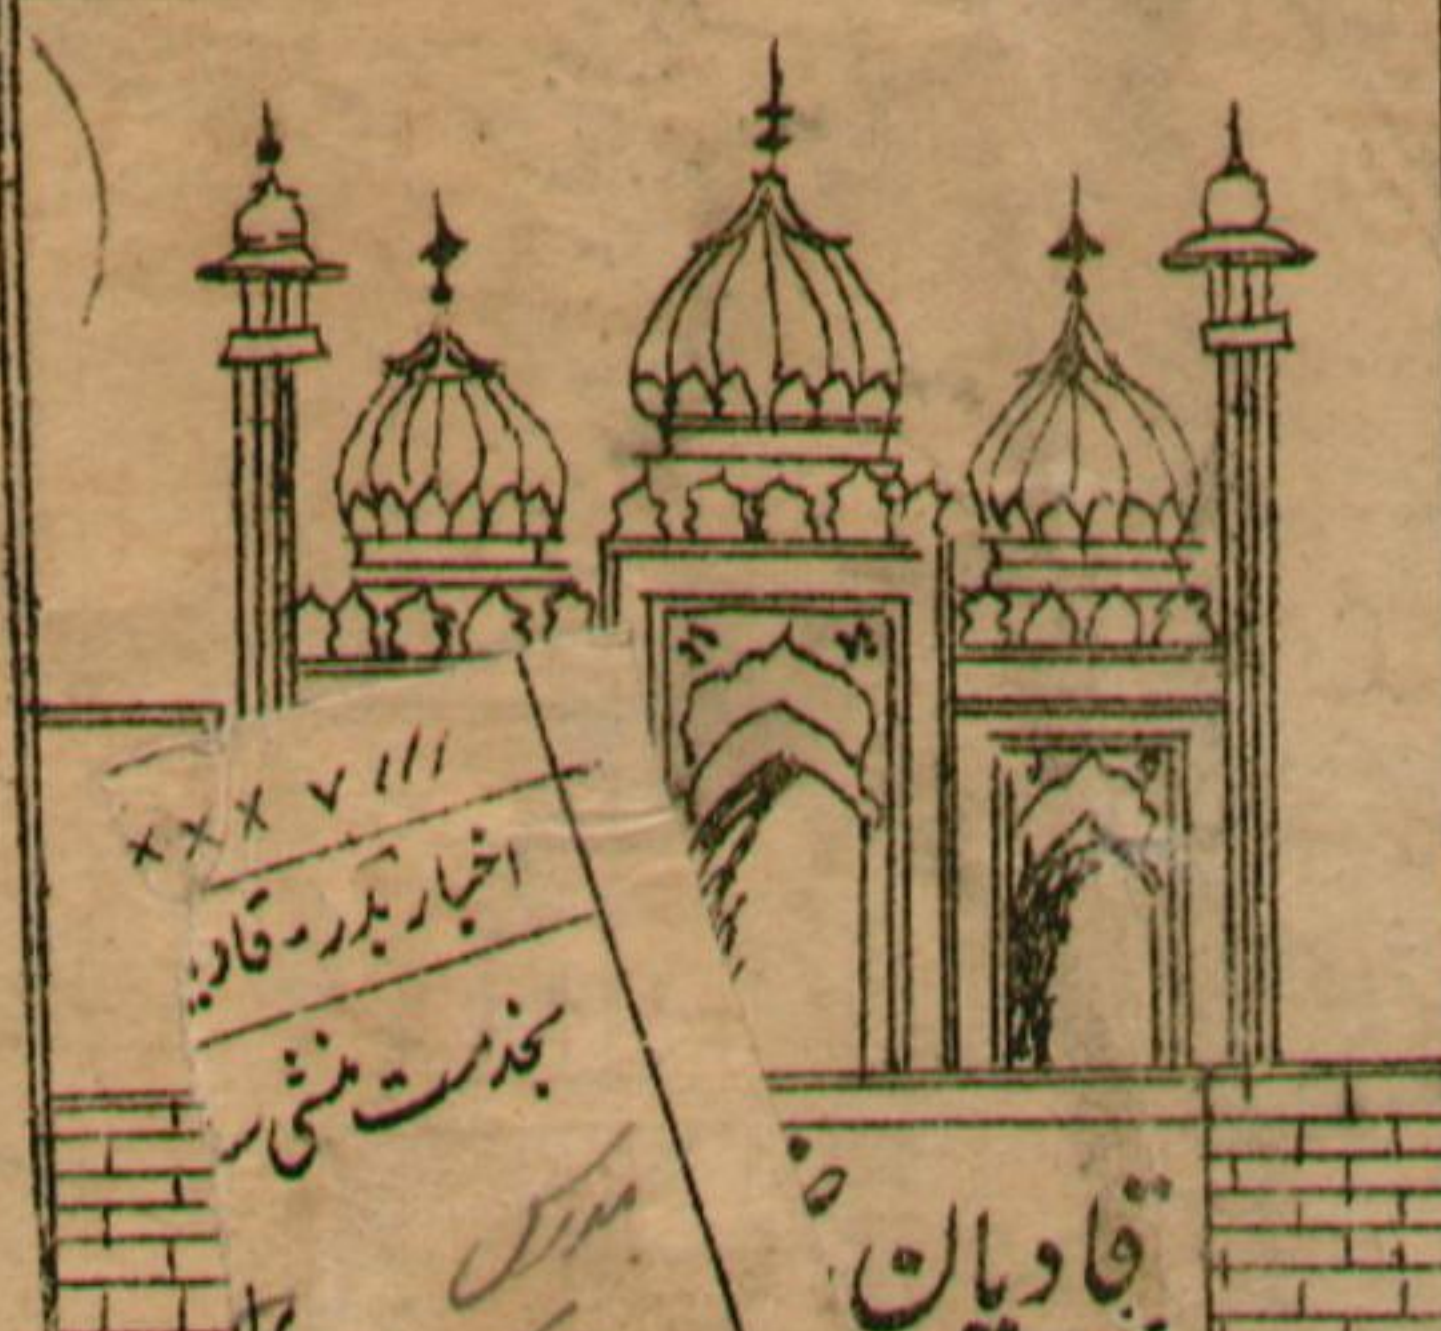 ××× ۷ ااا
اخبار بدر۔ قادیـ
بخدمت منشی سر
مدرس
قادیان